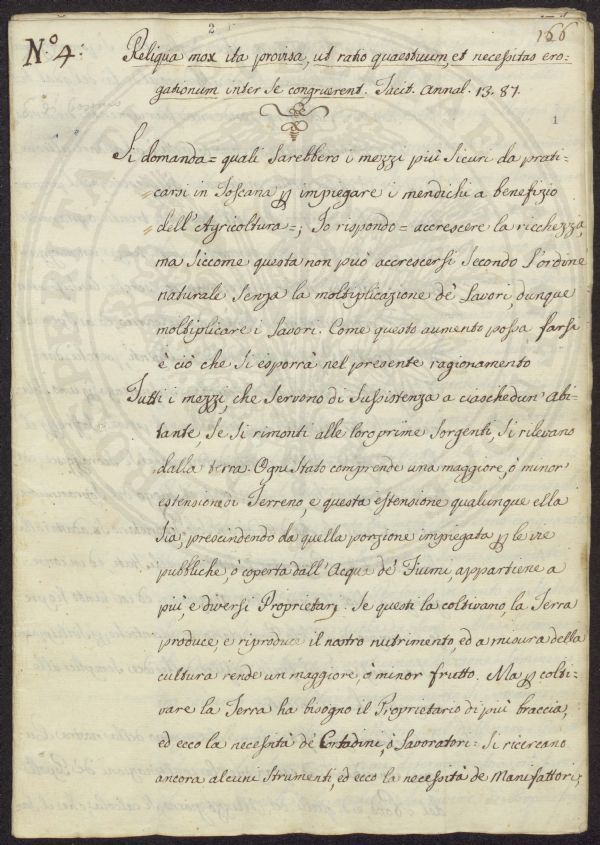 2
166
N.º 4:
Reliqua mox ita provisa, ut ratio quaestuum, et necessitas ero-
gationum inter se congruerent. Tacit. Annal. 13. 87.
1
Si domanda = quali sarebbero i mezzi più sicuri da prati-
= carsi in Toscana p impiegare i mendichi a benefizio
= dell'Agricoltura =; Io rispondo = accrescere la ricchezza,
ma siccome questa non può accrescersi secondo l'ordine
naturale senza la moltiplicazione de' Lavori, dunque
moltiplicare i Lavori. Come questo aumento possa farsi
è ciò che si esporrà nel presente ragionamento
Tutti i mezzi, che servono di sussistenza a ciaschedun abi-
tante se si rimonti alle loro prime sorgenti, si rilevano
dalla terra. Ogni Stato comprende una maggiore, ò minor
estensione di Terreno, e questa estensione qualunque ella
sia, prescindendo da quella porzione impiegata p le vie
pubbliche, ò coperta dall'Acqua de' Fiumi, appartiene a
più, e diversi Proprietarj. Se questi la coltivano, la Terra
produce, e riproduce il nostro nutrimento, ed a misura della
cultura rende un maggiore, ò minor frutto. Ma p colti-
vare la Terra ha bisogno il Proprietario di più braccia,
ed ecco la necessità de' Contadini, ò Lavoratori: Si ricercano
ancora alcuni strumenti, ed ecco la necessità de Manifattori,